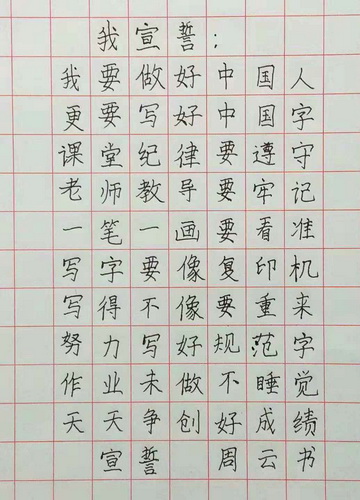 我宣誓：
我要做好中国人
更要写好中国字
课堂纪律要遵守
老师教导要牢记
一笔一画要看准
写字要像复印机
写得不像要重来
努力写好规范字
作业未做不睡觉
天天争创好成绩
宣誓 周云书